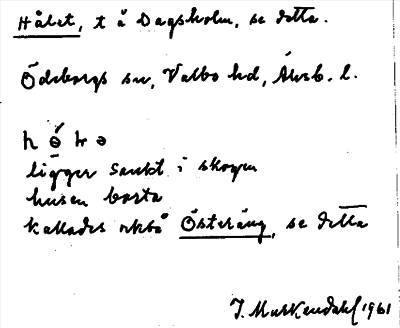 Hålet, t å Dagsholm, se detta.
Ödeborgs sn, Valbo hd, Älvsb. l.
ligger sankt i skogen
husen borta
kallades också Österäng, se detta
J. Markendahl 1961